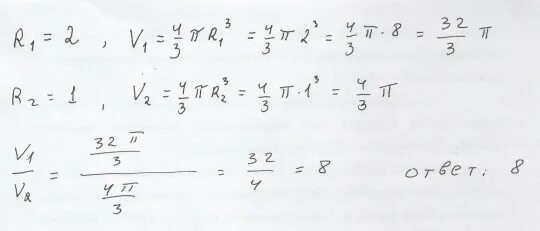 R₁ = 2 , V₁ = 4/3 π R₁³ = 4/3 π 2³ = 4/3 π · 8 = 32/3 π
R₂ = 1 , V₂ = 4/3 π R₂³ = 4/3 π · 1³ = 4/3 π
V₁/V₂ = (32π/3)/(4π/3) = 32/4 = 8 ответ: 8